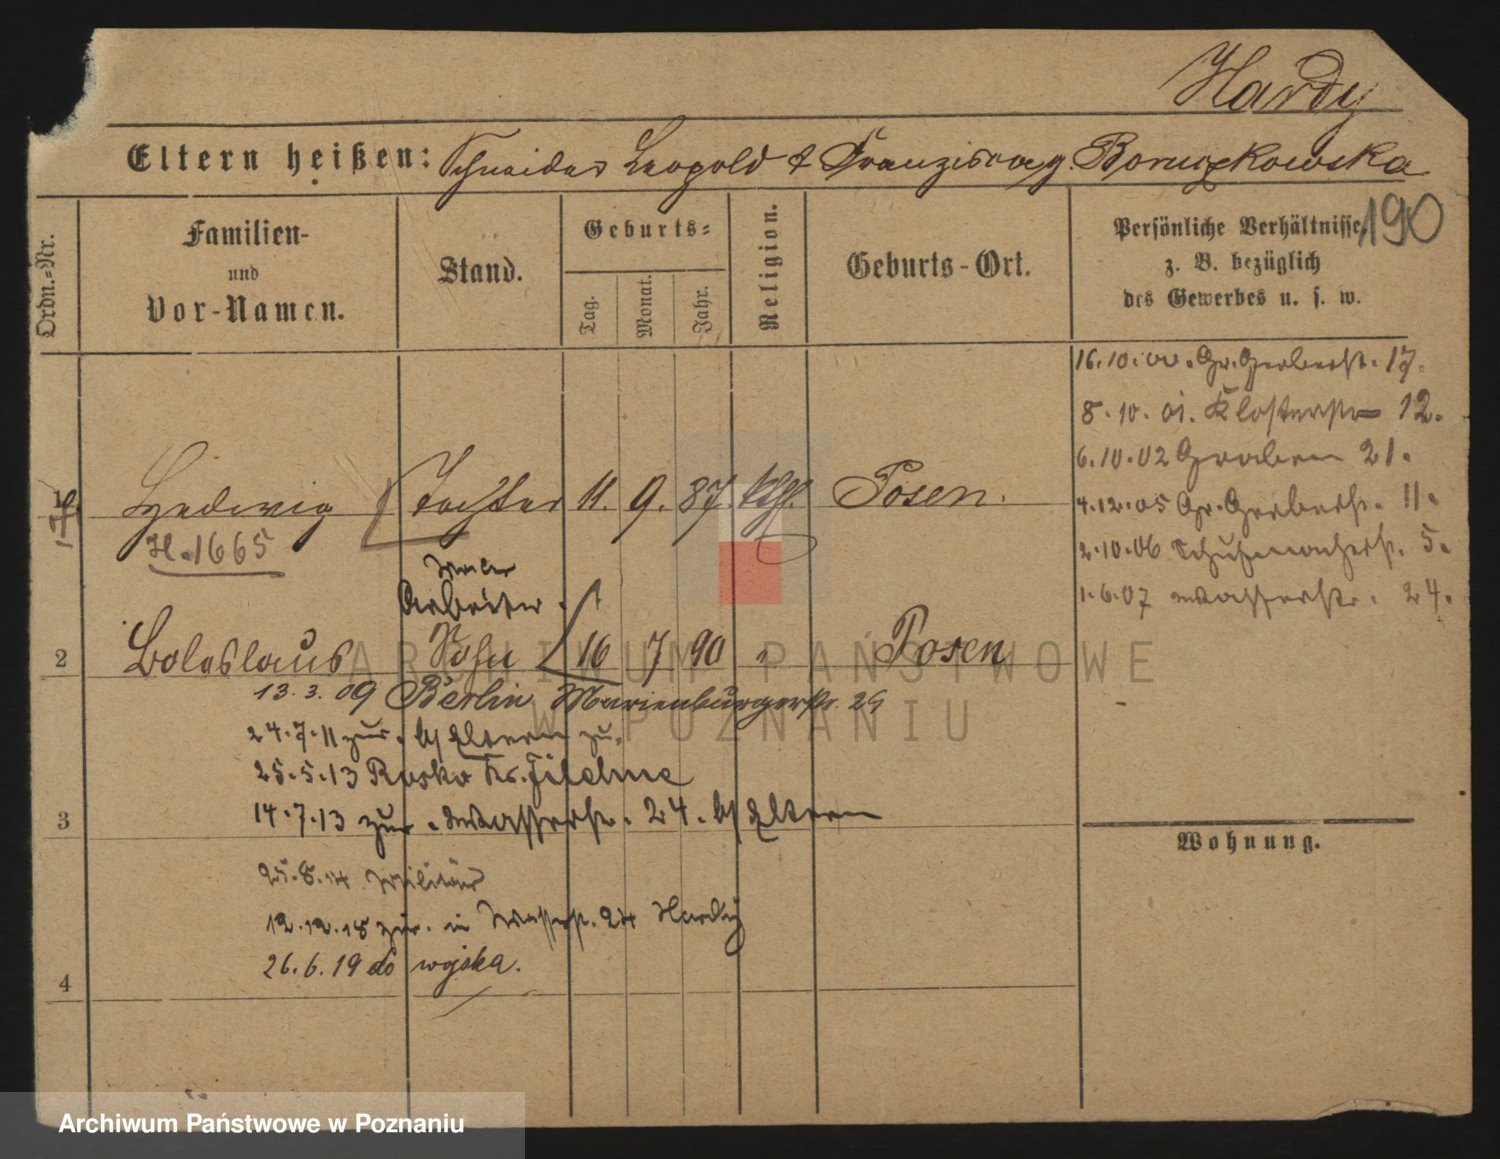 Hardy
Eltern heißen: Schneider Leopold & Franziska g.
190
Ordn.-Nr.
Familien-
und
Vor-Namen.
Stand.
Geburts-
Tag.
Monat.
Jahr.
Religion.
Geburts-Ort.
Persönliche Verhältnisse
z. B. bezüglich
des Gewerbes u. s. w.
16.10.00. Gr. Gerberst. 17.
8.10.01. Klosterstr 12.
6.10.02 Graben 21.
4.12.05 Gr. Gerberstr. 11.
2.10.06 Schuhmacherstr. 5.
1.6.07 Wasserstr. 24.
Hedwig Tochter 11. 9. 87. kth. Posen.
H. 1665
Maler
Arbeiter.
2 Boleslaus Sohn 16 7 90 " Posen
13.3.09 Berlin Marienburgerstr. 29
24.7.11 zur. b/ Eltern zu.
25.5.13 Rosko Kr. Filehne
3 14.7.13 zur. Wasserstr. 24. b/ Eltern
Wohnung.
25.8.14 Militär
12.12.18 zur. in Wasserst. 24 Hardy
4 26.6.19 do wojska.
ARCHIWUM PAŃSTWOWE
W POZNANIU
Archiwum Państwowe w Poznaniu